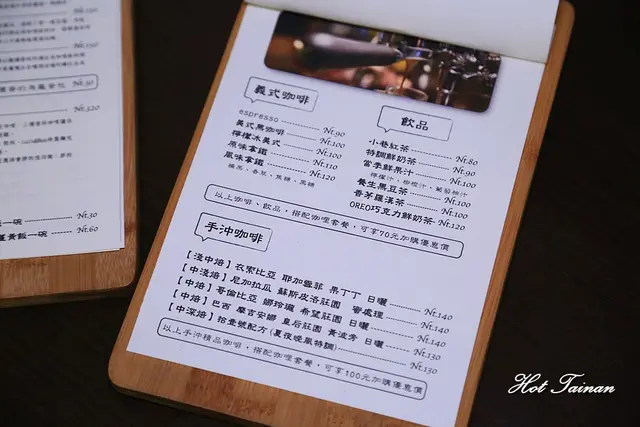 Nt.150
Nt.150
Nt.50
Nt.320
Nt.30
薑黃飯一碗 Nt.60
義式咖啡
espresso Nt.90
義式黑咖啡 Nt.100
檸檬冰美式 Nt.100
原味拿鐵 Nt.110
風味拿鐵 Nt.120
榛果、香草、焦糖、黑糖
飲品
小巷紅茶 Nt.80
特調鮮奶茶 Nt.90
當季鮮果汁 Nt.100
檸檬汁、柳橙汁、葡萄柚汁
養生黑豆茶 Nt.100
香茅羅漢茶 Nt.100
OREO巧克力鮮奶茶 Nt.120
以上咖啡、飲品，搭配咖哩套餐，可享70元加購優惠價
手沖咖啡
【淺中焙】衣索比亞 耶加雪菲 果丁丁 日曬 Nt.140
【中淺焙】尼加拉瓜 蘇斯皮洛莊園 蜜處理 Nt.140
【中焙】哥倫比亞 娜玲瓏 希望莊園 日曬 Nt.140
【中焙】巴西 摩吉安娜 皇后莊園 黃波旁 日曬 Nt.130
【中深焙】拾壹號配方(夏夜晚風特調) Nt.130
以上手沖精品咖啡，搭配咖哩套餐，可享100元加購優惠價
Hot Tainan